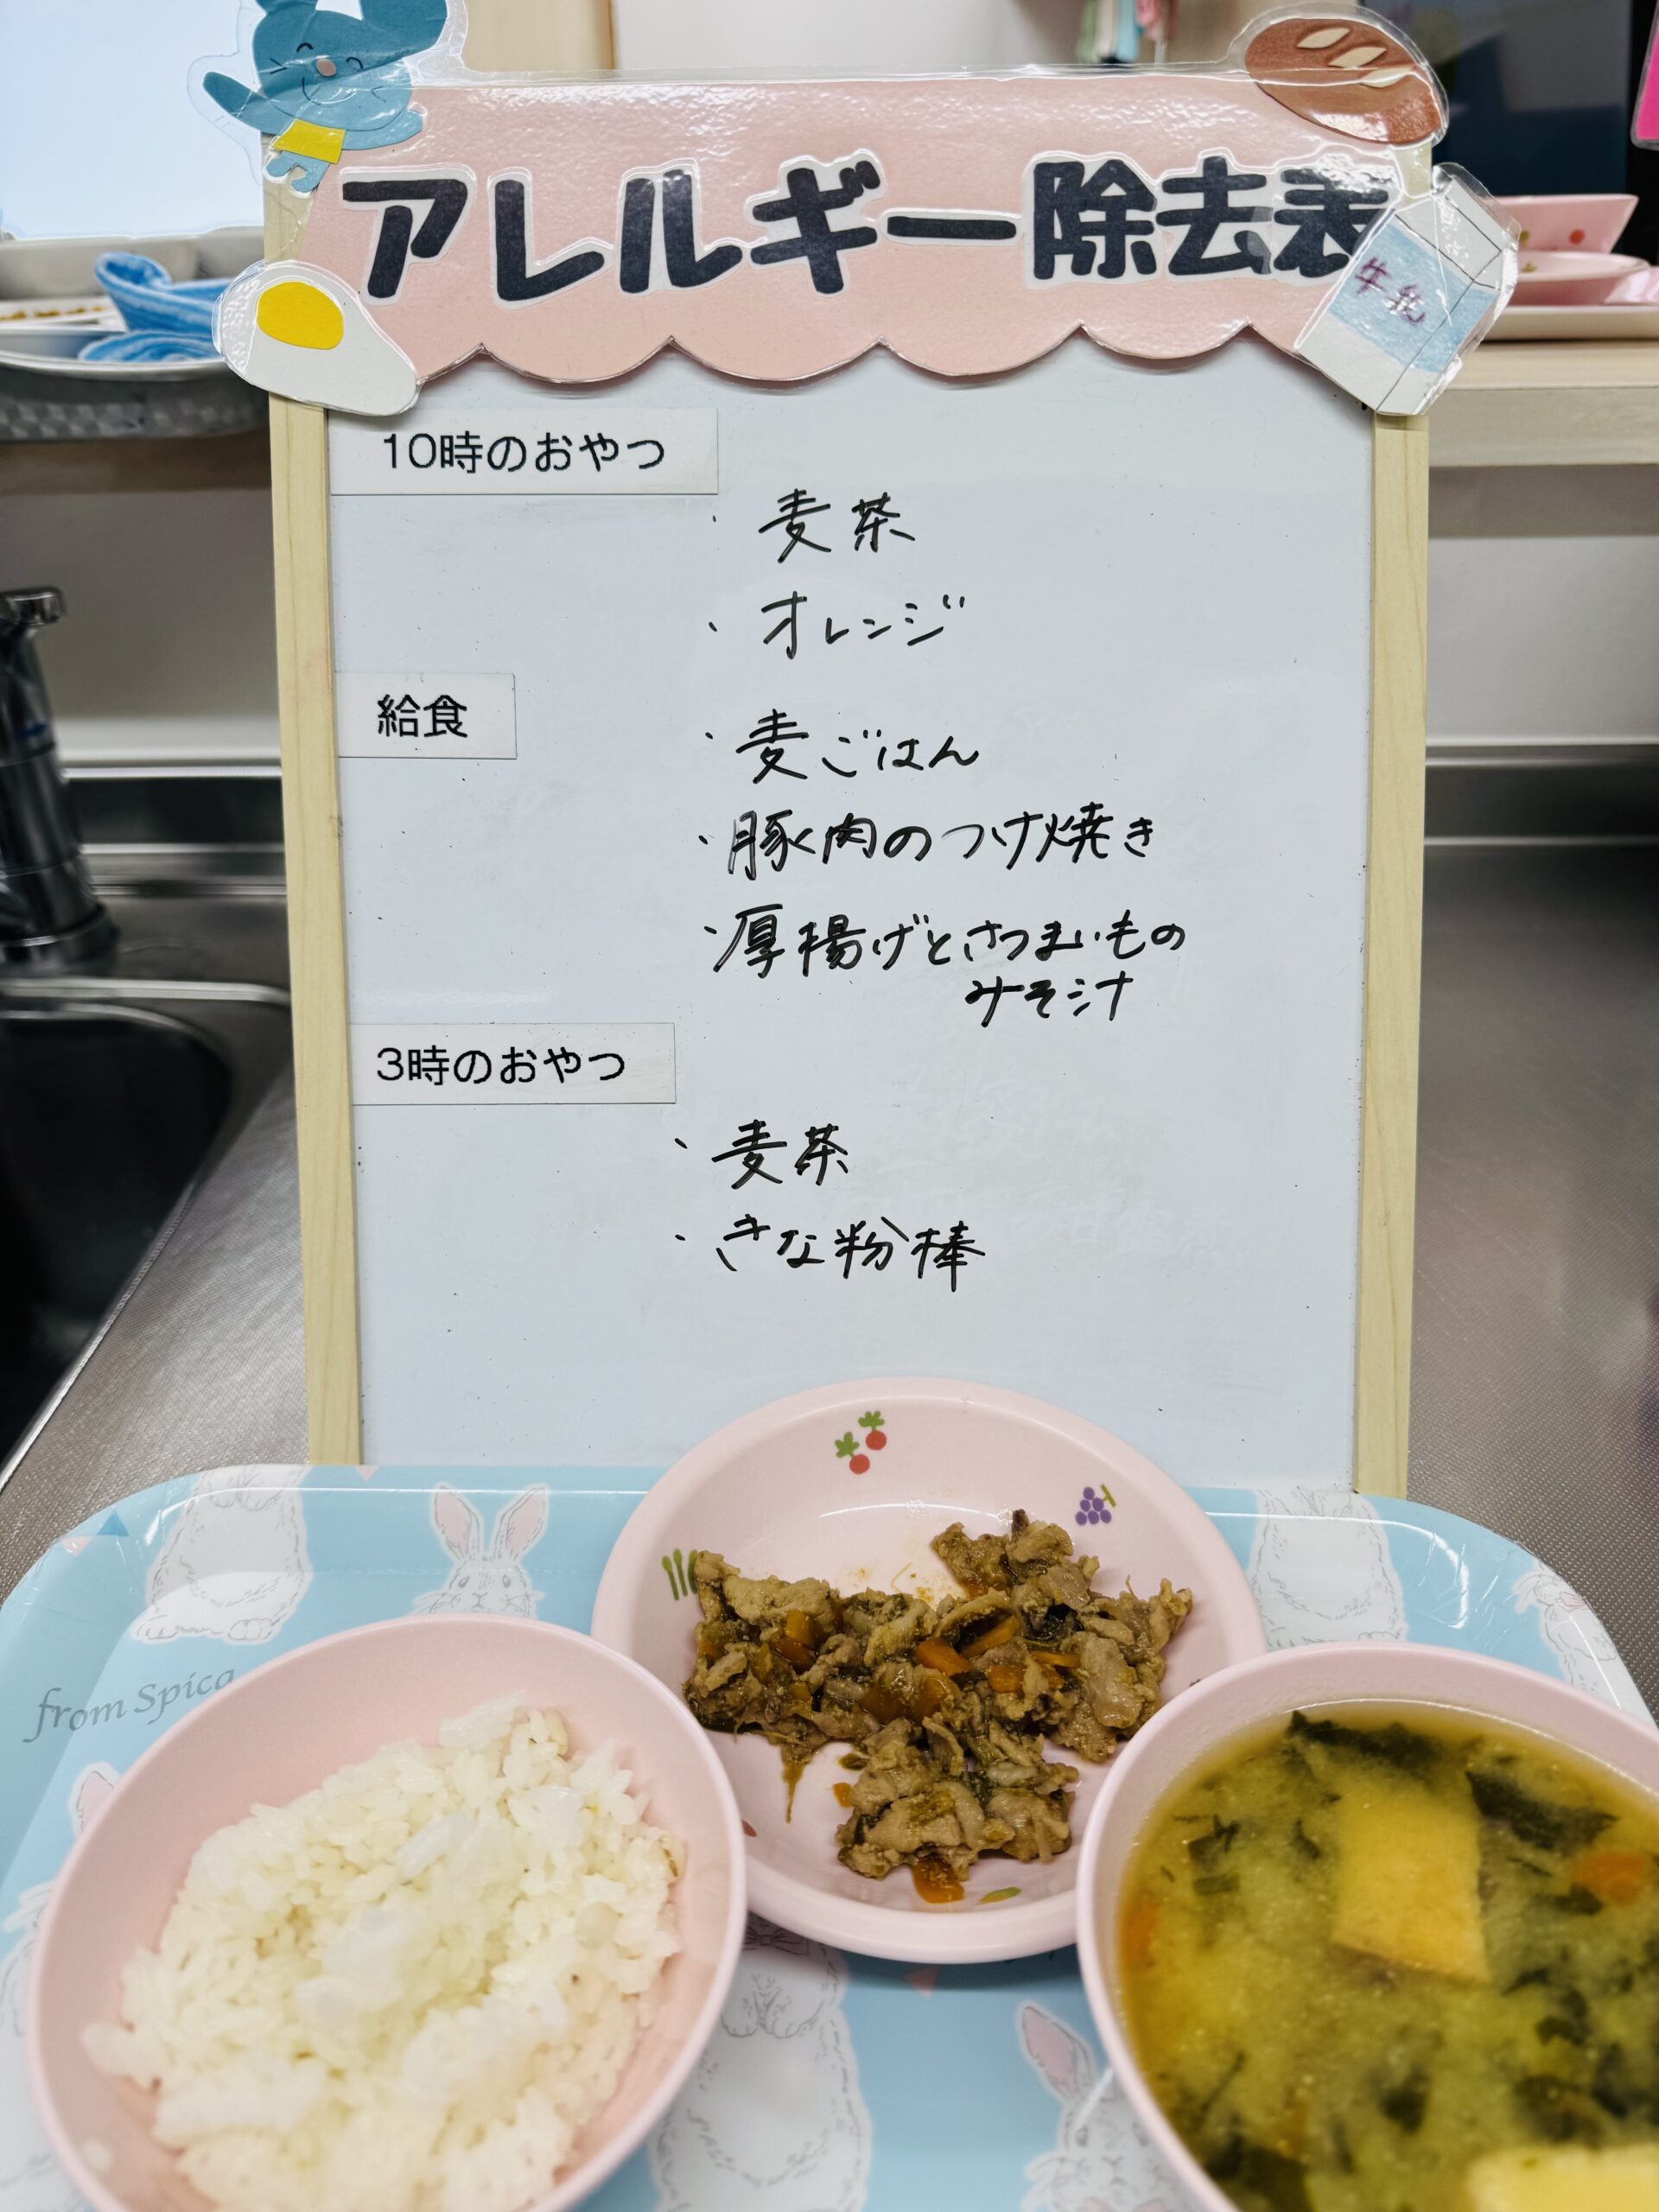 アレルギー除去表
牛乳
10時のおやつ
・麦茶
・オレンジ
給食
・麦ごはん
・豚肉のつけ焼き
・厚揚げとさつまいもの
みそ汁
3時のおやつ
・麦茶
・きな粉棒
from Spica